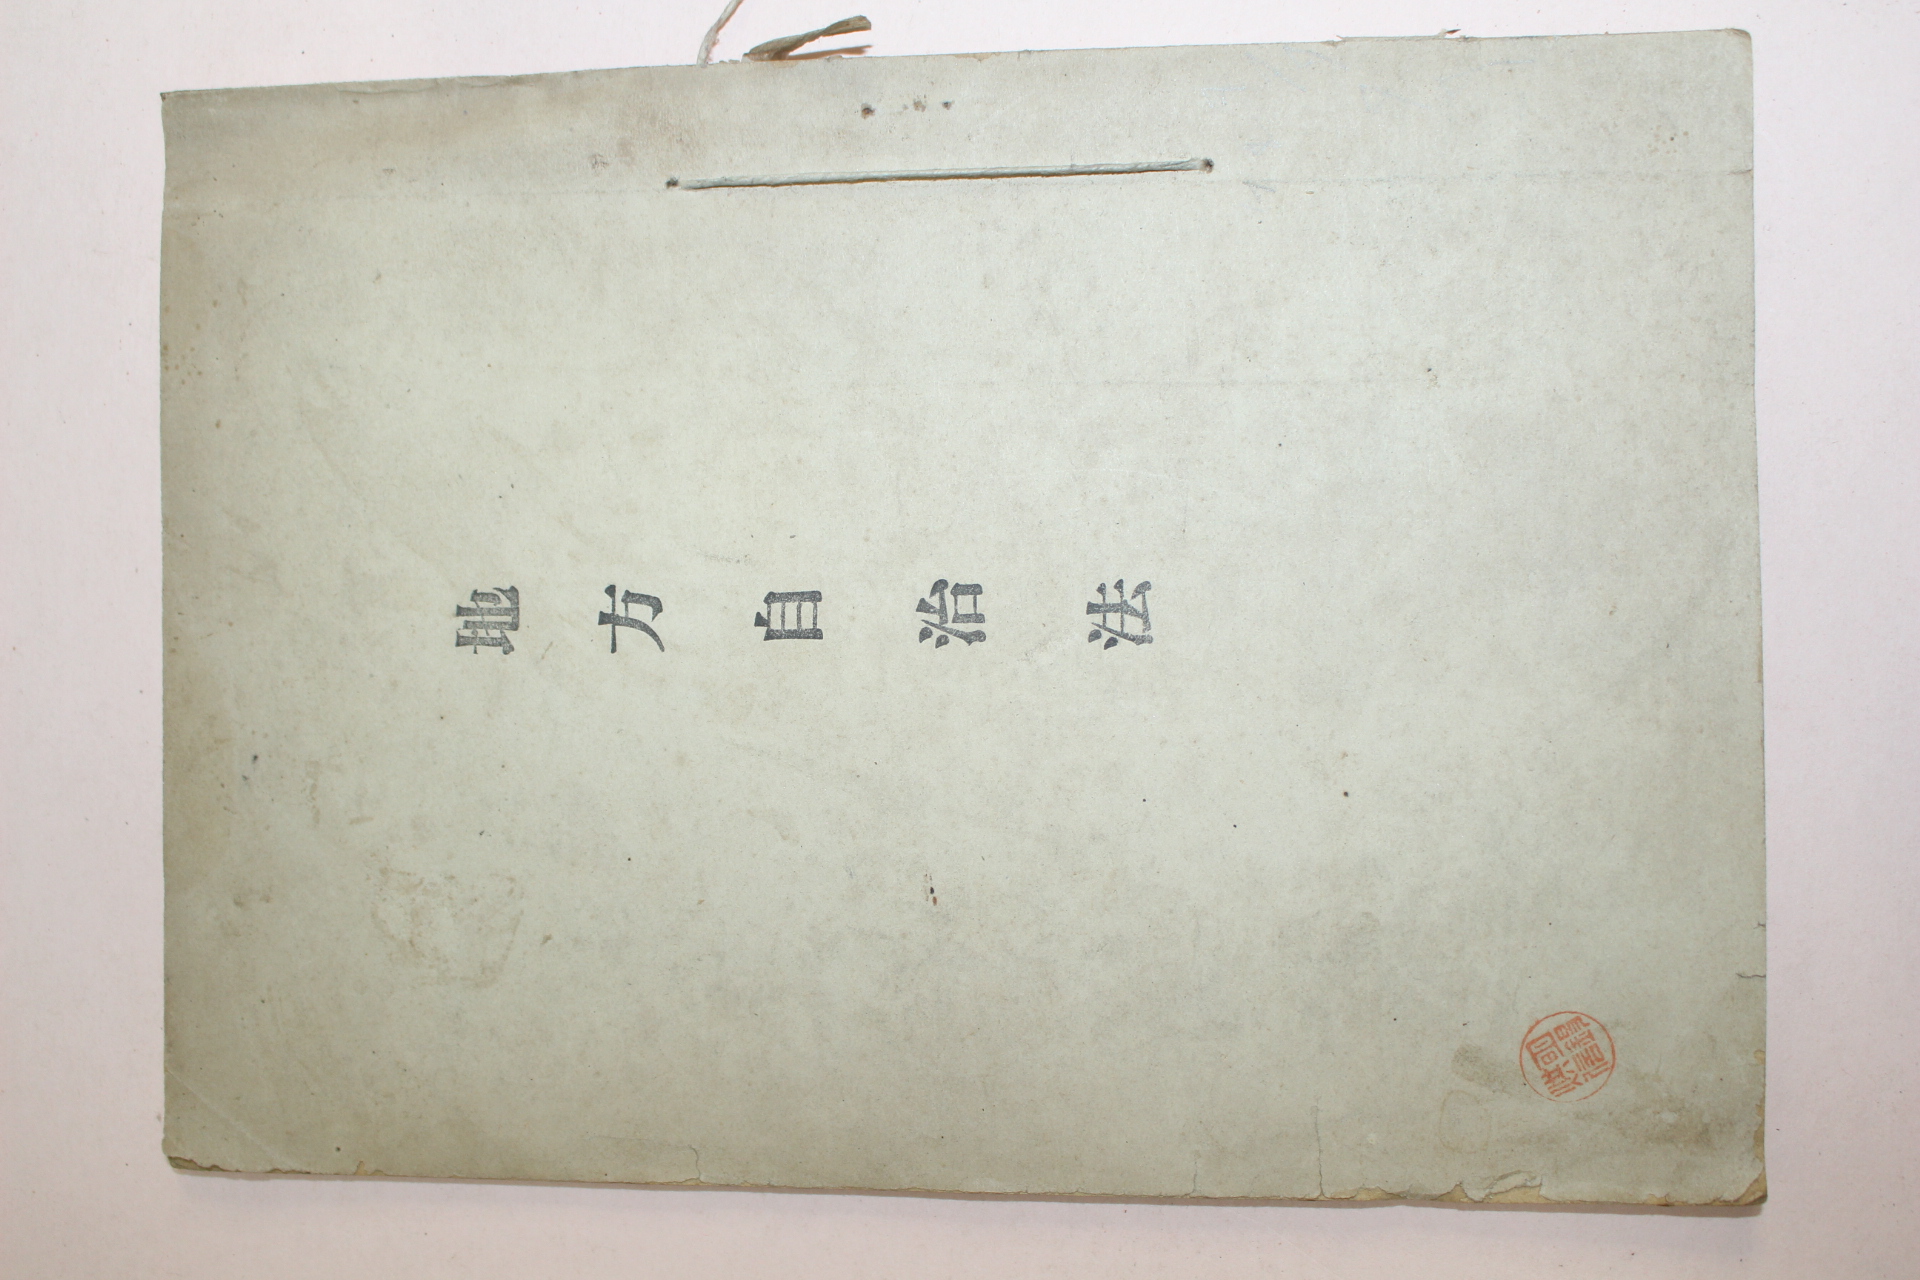 地方自治法